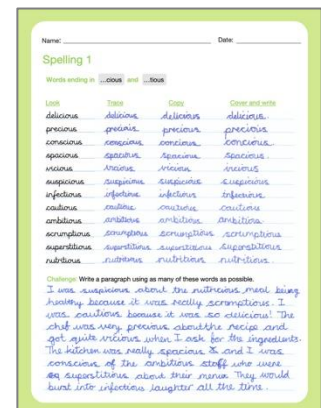 Name: Date:
Spelling 1
Words ending in ...cious and ...tious
Look Trace Copy Cover and write
delicious delicious delicious delicious
precious precious precious precious
conscious conscious concious concious
spacious spacious spacious spacious
vicious vicious vicious vicious
suspicious suspicious suspicious suspicious
infectious infectious infectious infectious
cautious cautious cautious cautious
ambitious ambitious ambitious ambitious
scrumptious scrumptious scrumptious scrumptious
superstitious superstitious superstitious superstitious
nutritious nutritious nutritious nutritious
Challenge: Write a paragraph using as many of these words as possible.
I was suspicious about the nutricious meal being
healthy because it was really scromptious. I
was cautious because it was so delicious! The
chef was very precious about the recipe and
got quite vicious when I ask for the ingredients.
The kitchen was really spacious & and I was
conscious of the ambitious staff who were
superstitious about their menus. They would
burst into infectious laughter all the time.